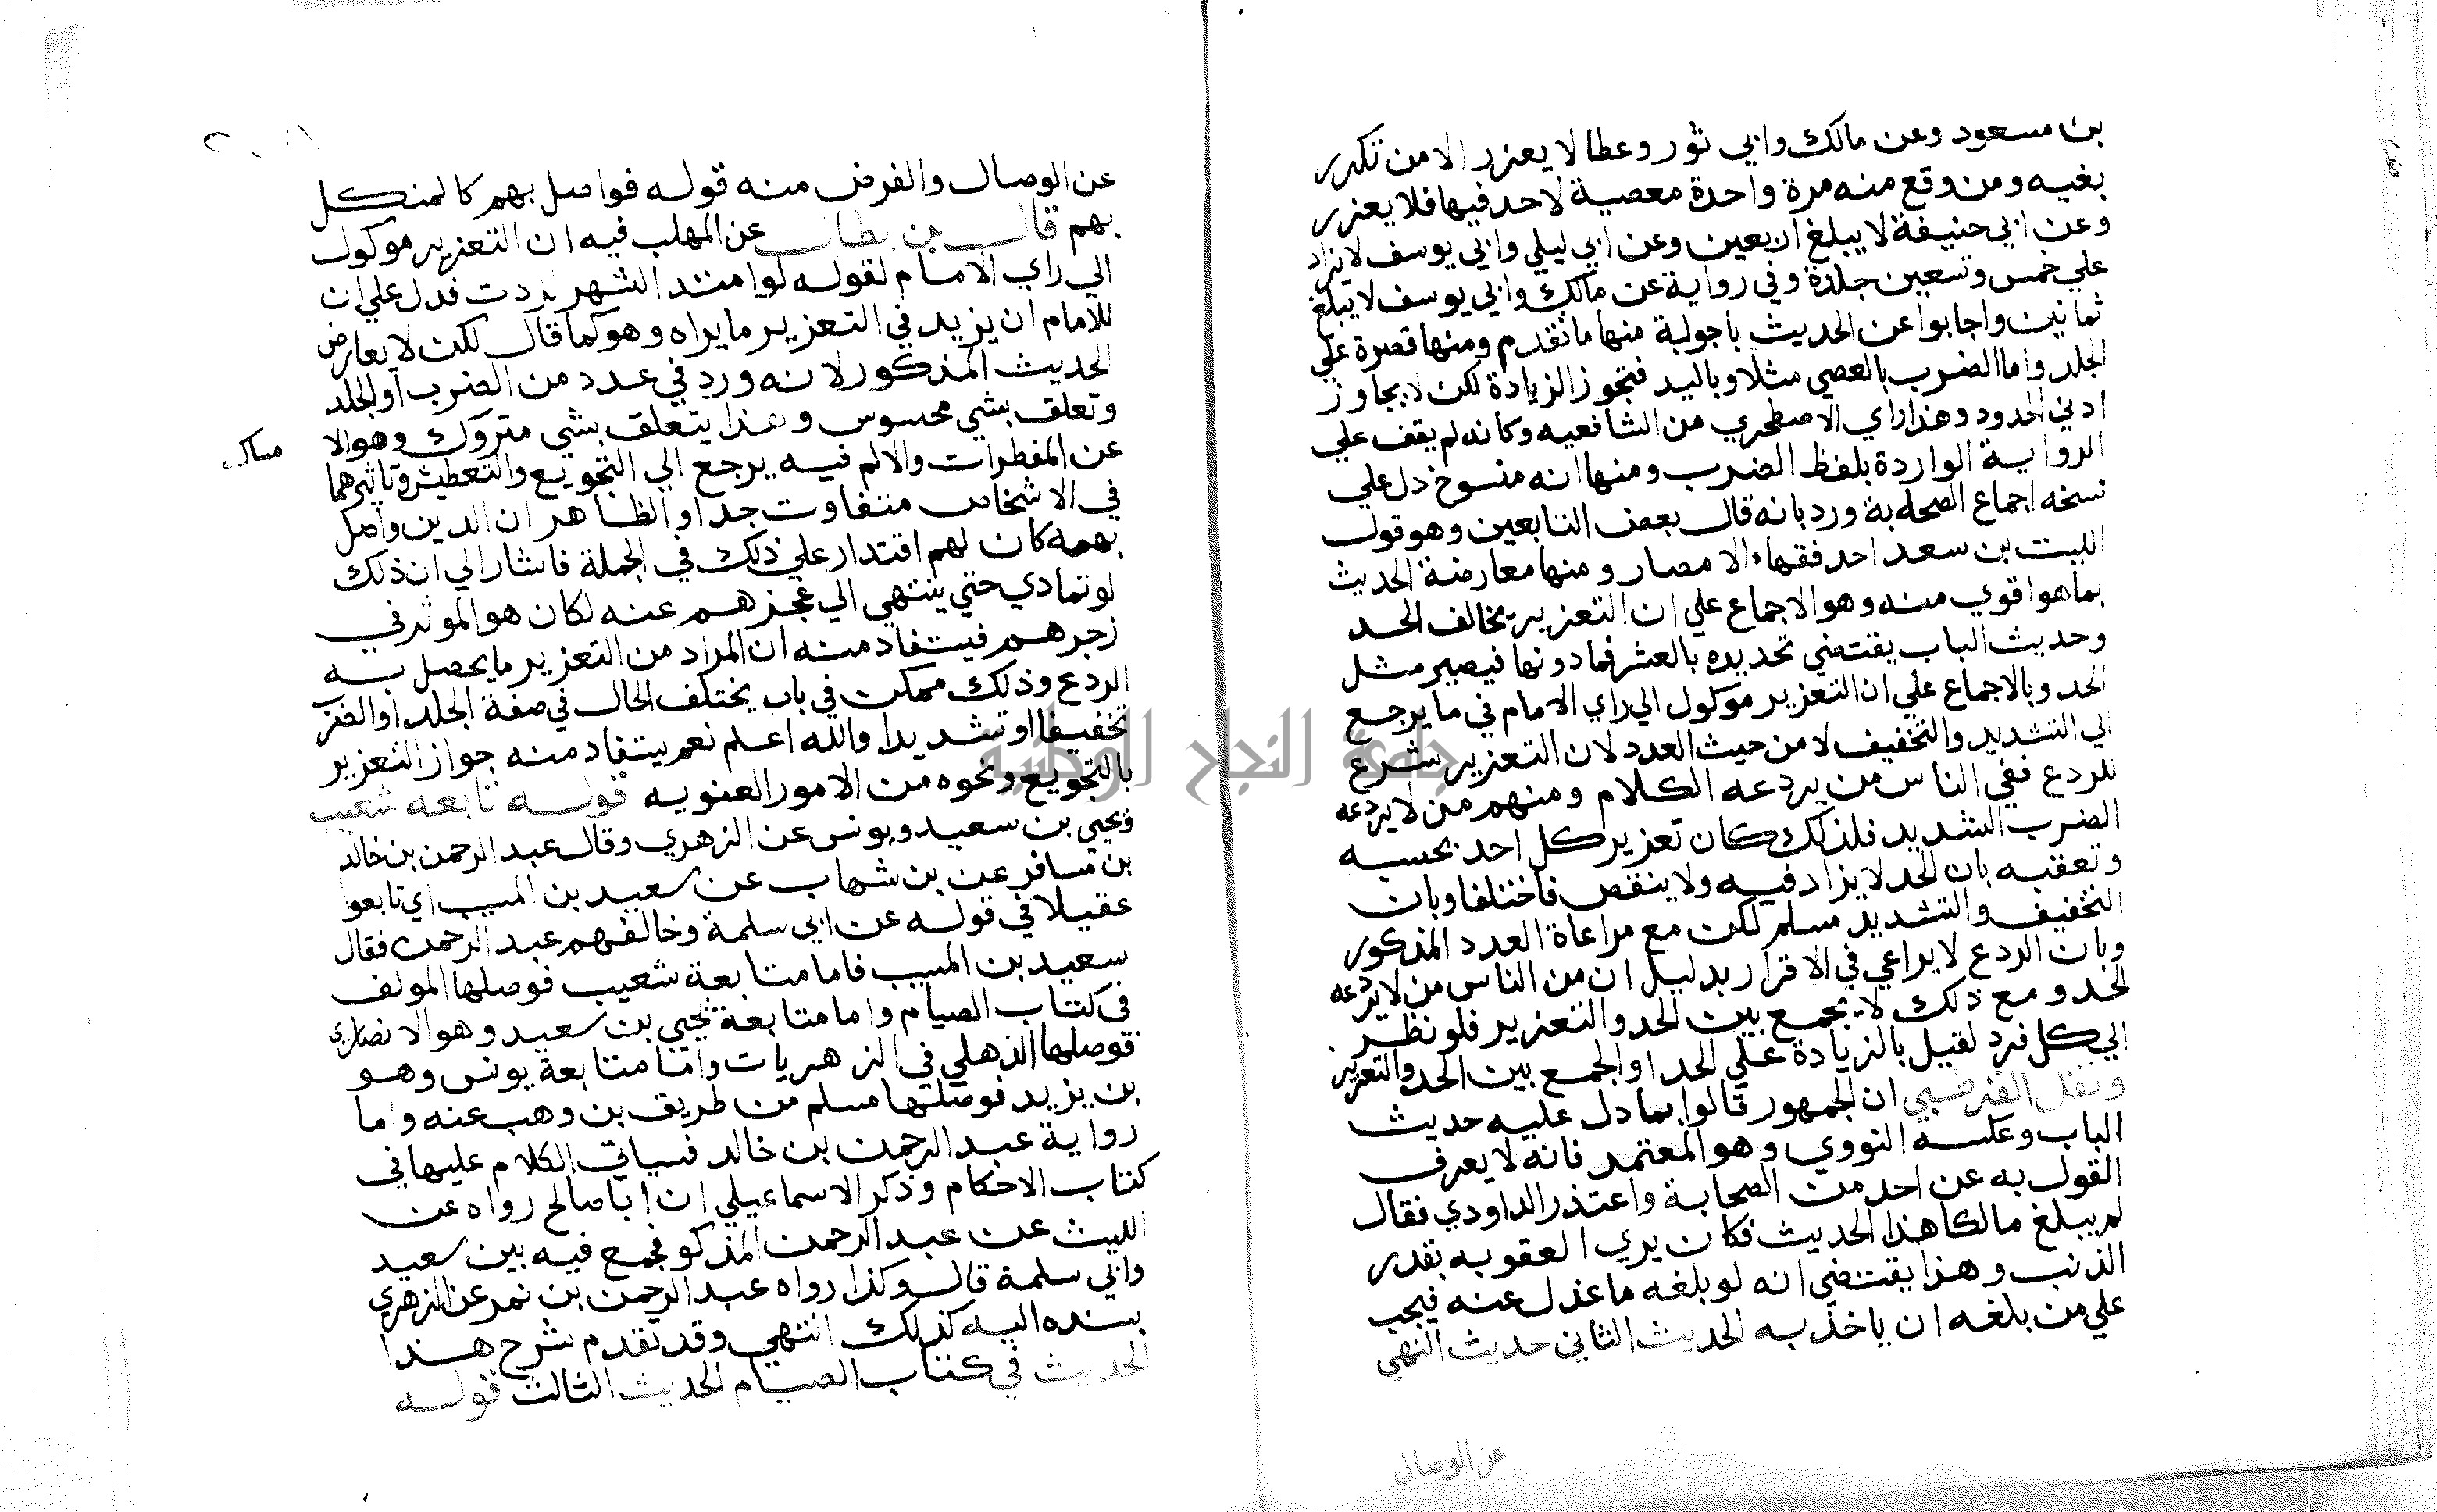 بن مسعود وعن مالك وابي ثور وعطا لا يعزر الا من تكرر
بغيه ومن وقع منه مرة واحدة معصية لا حد فيها فلا يعزر
وعن ابي حنيفة لا يبلغ اربعين وعن ابي ليلي وابي يوسف لا يزاد
علي خمس وتسعين جلدة وفي رواية عن مالك وابي يوسف لا يبلغ
ثمانين واجابوا عن الحديث باجوبة منها ما تقدم ومنها قصره علي
الجلد واما الضرب بالعصي مثلا وباليد فتجوز الزيادة لكن لا يجاوز
ادني الحدود وهذا راي الاصطخري من الشافعيه وكانه لم يقف علي
الرواية الواردة بلفظ الضرب ومنها انه منسوخ دل علي
نسخه اجماع الصحابة ورد بانه قال بعض التابعين وهو قول
الليت بن سعد احد فقهاء الامصار ومنها معارضة الحديث
بما هو اقوي منه وهو الاجماع علي ان التعزير يخالف الحد
وحديث الباب يقتضي تحديده بالعشر فما دونها فيصير مثل
الحد وبالاجماع علي ان التعزير موكول الي راي الامام في ما يرجع
الي التشديد والتخفيف لا من حيث العدد لان التعزير شرع
للردع ففي الناس من يردعه الكلام ومنهم من لا يردعه
الضرب الشديد فلذلك كان تعزير كل احد بحسبه
وتعقبه بان الحد لا يزاد فيه ولا ينقص فاختلفا وبان
التخفيف والتشديد مسلم لكن مع مراعاة العدد المذكور
وبان الردع لا يراعي في الاقرار بدليل ان من الناس من لا يردعه
الحد ومع ذلك لا يجمع بين الحد والتعزير فلو نظر
الي كل فرد لقيل بالزيادة علي الحد او الجمع بين الحد والتعزير
ونقل القرطبي ان الجمهور قالوا بما دل عليه حديث
الباب وعكسه النووي وهو المعتمد فانه لا يعرف
القول به عن احد من الصحابة واعتذر الداودي فقال
لم يبلغ مالكا هذا الحديث فكان يري العقوبه بقدر
الذنب وهذا يقتضي انه لو بلغه ما عذل عنه فيجب
علي من بلغه ان ياخذ به الحديث الثاني حديث النهي
عن الوصال
عن الوصال والفرض منه قوله فواصل بهم كالمنكل
بهم قال بن بطال عن المهلب فيه ان التعزير موكول
الي راي الامام لقوله لو امتد الشهر لزدت فدل علي ان
للامام ان يزيد في التعزير ما يراه وهو كما قال لكن لا يعارض
الحديث المذكور لانه ورد في عدد من الضرب او الجلد
وتعلق بشي محسوس وهذا يتعلق بشي متروك وهو الا
مساك
عن المفطرات والالم فيه يرجع الي التجويع والتعطيش وتاثيرهما
في الاشخاص متفاوت جدا والظاهر ان الذين واصل
بهمه كان لهم اقتدار علي ذلك في الجملة فاشار الي ان ذلك
لو تمادي حتي ينتهي الي عجزهم عنه لكان هو الموثر في
زجرهم فيستفاد منه ان المراد من التعزير ما يحصل به
الردع وذلك ممكن في باب يختلف الحال في صفة الجلد او الضرب
تخفيفا او تشديدا والله اعلم نعم يستفاد منه جواز التعزير
بالتجويع ونحوه من الامور العنويه قوله تابعه شعيب
ويحيي بن سعيد ويونس عن الزهري وقال عبد الرحمن بن خالد
بن مسافر عن بن شهاب عن سعيد بن المسيب اي تابعوا
عقيلا في قوله عن ابي سلمة وخالفهم عبد الرحمن فقال
سعيد بن المسيب فاما متابعة شعيب فوصلها المولف
في كتاب الصيام واما متابعة يحيي بن سعيد وهو الانصاري
فوصلها الذهلي في الزهريات واما متابعة يونس وهو
بن يزيد فوصلها مسلم من طريق بن وهب عنه واما
رواية عبد الرحمن بن خالد فسياتي الكلام عليها في
كتاب الاحكام وذكر الاسماعيلي ان ابا صالح رواه عن
الليث عن عبد الرحمن المذكو فجمع فيه بين سعيد
وابي سلمة قال وكذا رواه عبد الرحمن بن نمر عن الزهري
بسنده اليه كذلك انتهي وقد تقدم شرح هذا
الحديث في كتاب الصيام الحديث الثالث قوله
جامعة النجاح الوطنية